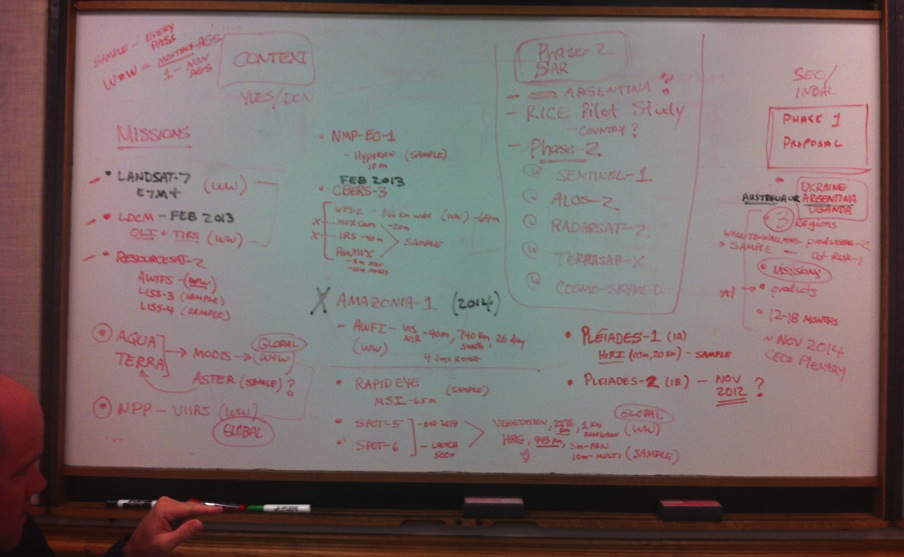 SAMPLE - EVERY
PASS
W+W = MONTHLY-AGS
1 - NON
AGS
CONTEXT
YVES/DON
MISSIONS
• LANDSAT-7
ETM+ (WW)
• LDCM - FEB 2013
OLI + TIRS (WW)
• RESOURCESAT-2
AWIFS - (WW)
LISS-3 (SAMPLE)
LISS-4 (SAMPLE)
• AQUA
TERRA
MODIS
GLOBAL
W+W
ASTER (SAMPLE) ?
• NPP - VIIRS (WW)
GLOBAL
• NMP-EO-1
- HYPERION (SAMPLE)
FEB 2013
• CBERS-3
(WW) - 64m
X - MUX CAM - 20m
X - IRS - 40m
SAMPLE
PANMUX
X AMAZONIA-1 (2014)
- AWFI - VIS
NIR - 40m, 740 Km, 26 day
(WW)
• RAPIDEYE (SAMPLE)
MSI - 6.5m
• SPOT-5 - END 2014
• SPOT-6 - LAUNCH
SOON
GLOBAL
VEGETATION, 1 Km (WW)
HRG, 5m-PAN
10m-MULTI (SAMPLE)
Phase-2
SAR
- ARGENTINA ?
- RICE Pilot Study
- COUNTRY ?
- Phase-2
SENTINEL-1
ALOS-2
RADARSAT-2
TERRASAR-X
COSMO-SKYMED
• PLÉIADES-1 (1A)
HiRI (0.7m, 20 Km) - SAMPLE
• PLEIADES-2 (1B) - NOV
2012 ?
SEO/
INBAL
PHASE 1
PROPOSAL
• UKRAINE
AUSTRALIA OR ARGENTINA
UGANDA
3 Regions
SAMPLE
• missions
• products
• 12-18 MONTHS
~ NOV 2014
CEOS PLENARY